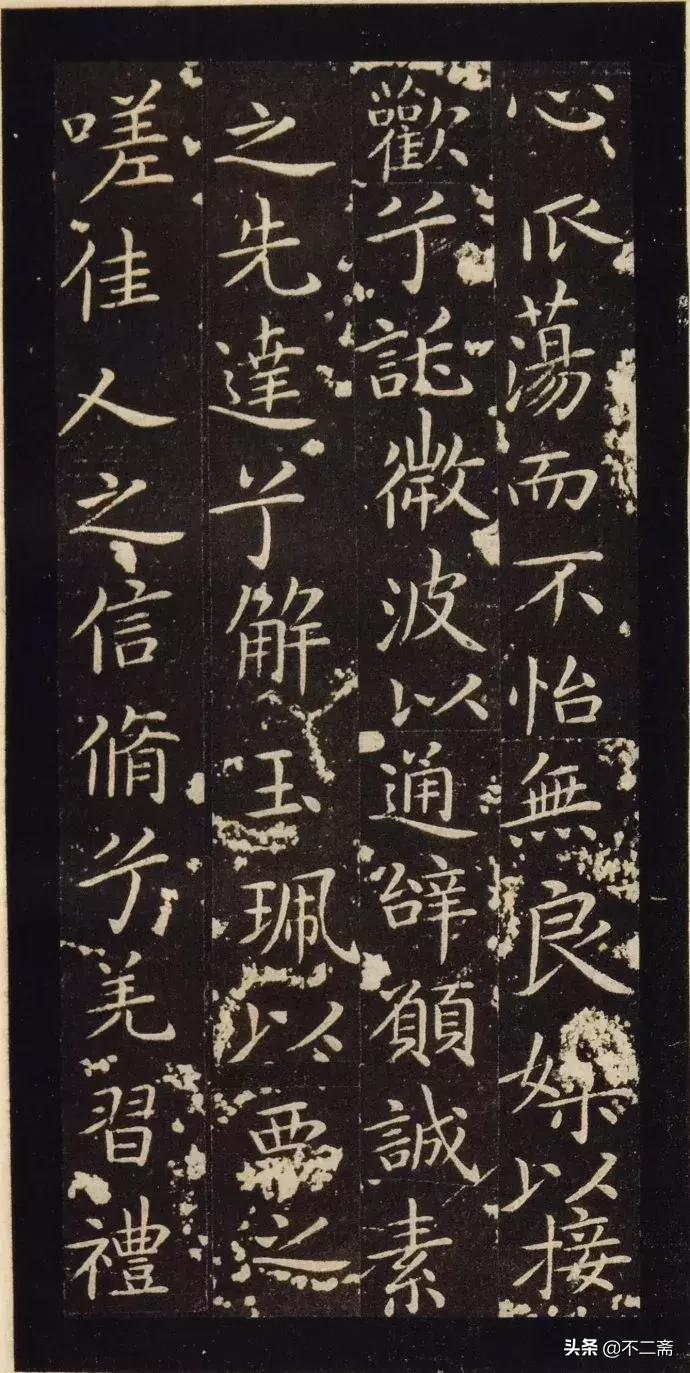 心蕩而不怡無良媒以接
歡兮託微波以通辝願誠素
之先達兮解玉珮以要之
嗟佳人之信脩兮羌習禮
头条 @不二斋